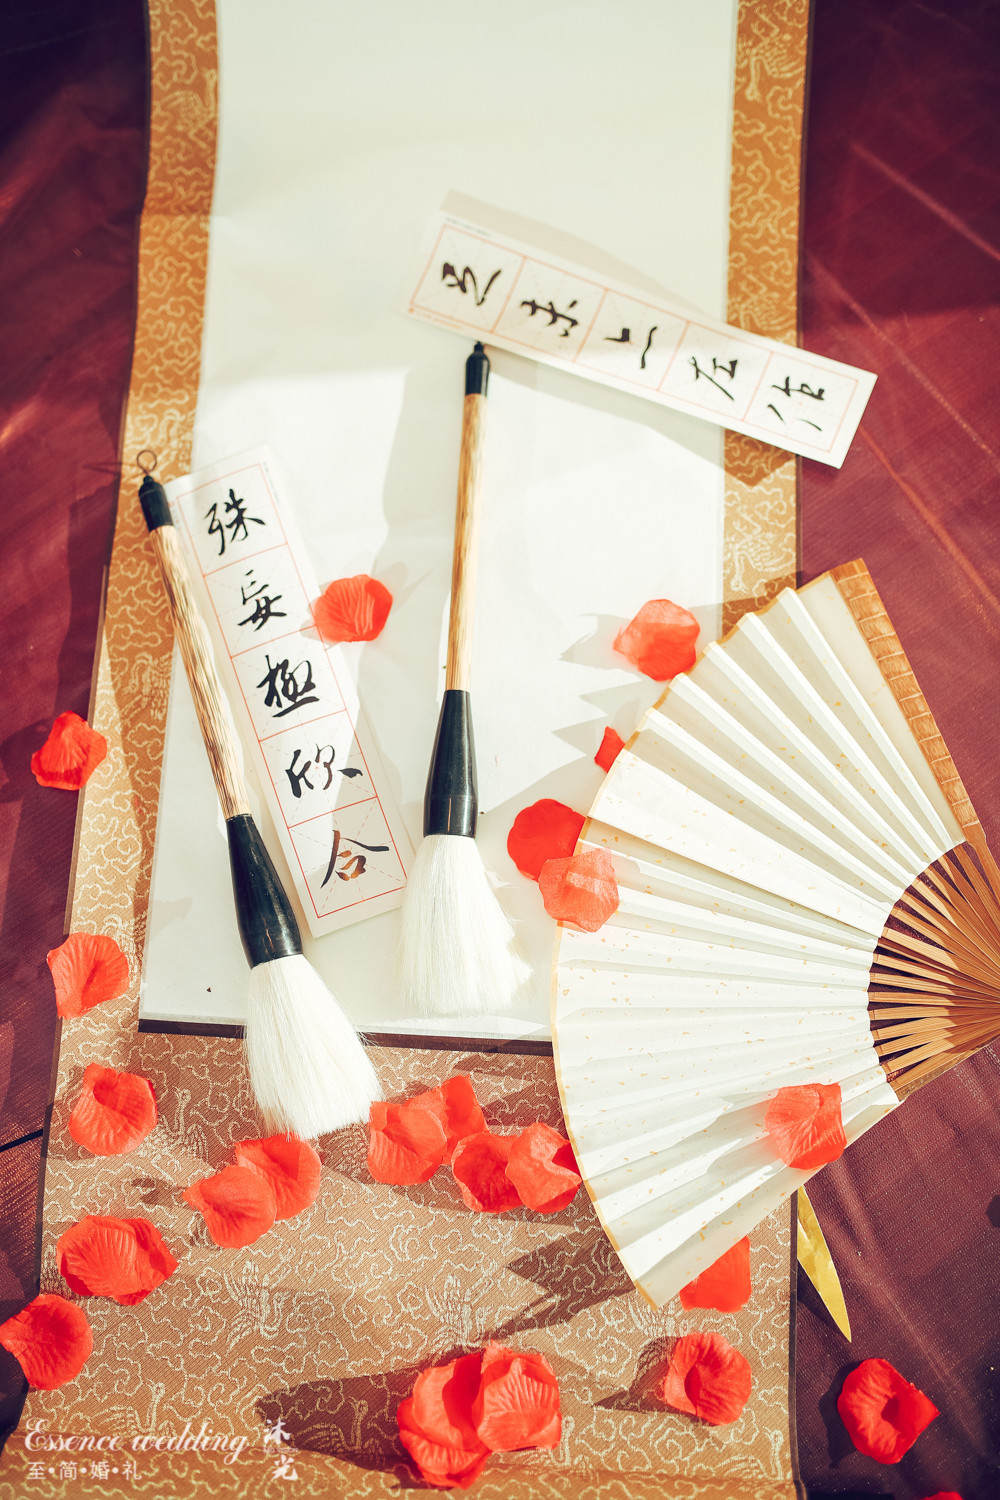 上左作
殊妄極欣合
Essence wedding
沐光
至•简•婚•礼